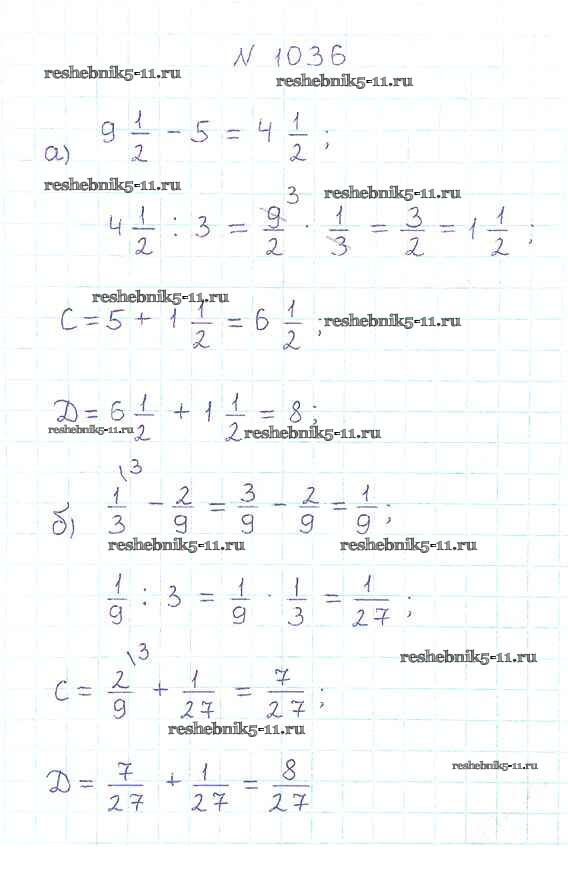 N 1036
reshebnik5-11.ru reshebnik5-11.ru
а) 9 1/2 - 5 = 4 1/2 ;
reshebnik5-11.ru reshebnik5-11.ru
4 1/2 : 3 = 9/2 3 · 1/3 = 3/2 = 1 1/2 ;
reshebnik5-11.ru
C = 5 + 1 1/2 = 6 1/2 ; reshebnik5-11.ru
Д = 6 1/2 + 1 1/2 = 8;
reshebnik5-11.ru reshebnik5-11.ru
б) 1/3 \3 - 2/9 = 3/9 - 2/9 = 1/9 ;
reshebnik5-11.ru reshebnik5-11.ru
1/9 : 3 = 1/9 · 1/3 = 1/27 ;
reshebnik5-11.ru
C = 2/9 \3 + 1/27 = 7/27 ;
reshebnik5-11.ru
Д = 7/27 + 1/27 = 8/27
reshebnik5-11.ru